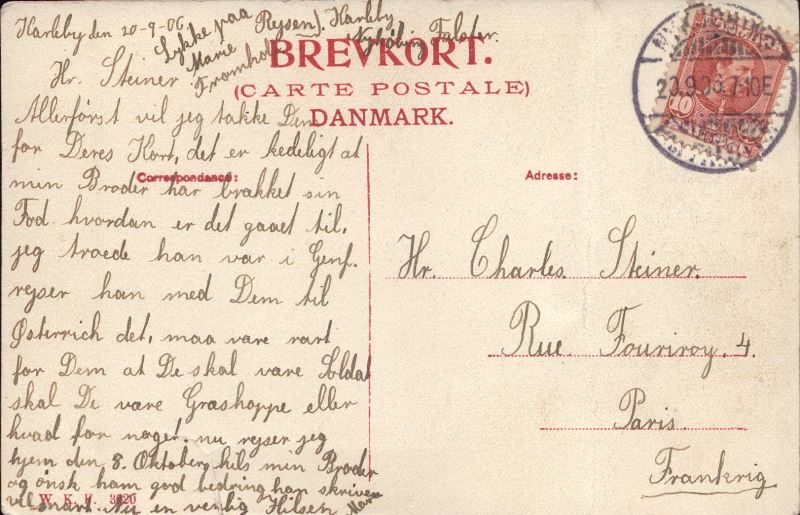 Karleby den 20-9-06.
Lykke paa
Rejsen). Karleby
Marie
Nykøbing Falster.
Fromholt
BREVKORT.
(CARTE POSTALE)
DANMARK.
20.9.06.7-10E
10
Hr. Steiner
Allerførst vil jeg takke Dem
for Deres Kort, det er kedeligt at
min Broder har brækket sin
Fod hvordan er det gaaet til.
jeg troede han var i Genf.
rejser han med Dem til
Østerrich det, maa være rart
for Dem at De skal være Soldat
skal De være Græshoppe eller
hvad for noget. nu rejser jeg
hjem den 8. Oktober, hils min Broder
og ønsk ham god bedring han skriver
vel snart. Nu en venlig Hilsen
Correspondance:
Adresse:
Hr. Charles. Steiner.
Rue. Fouriroy, 4.
Paris.
Frankrig
W. K. F. 3820